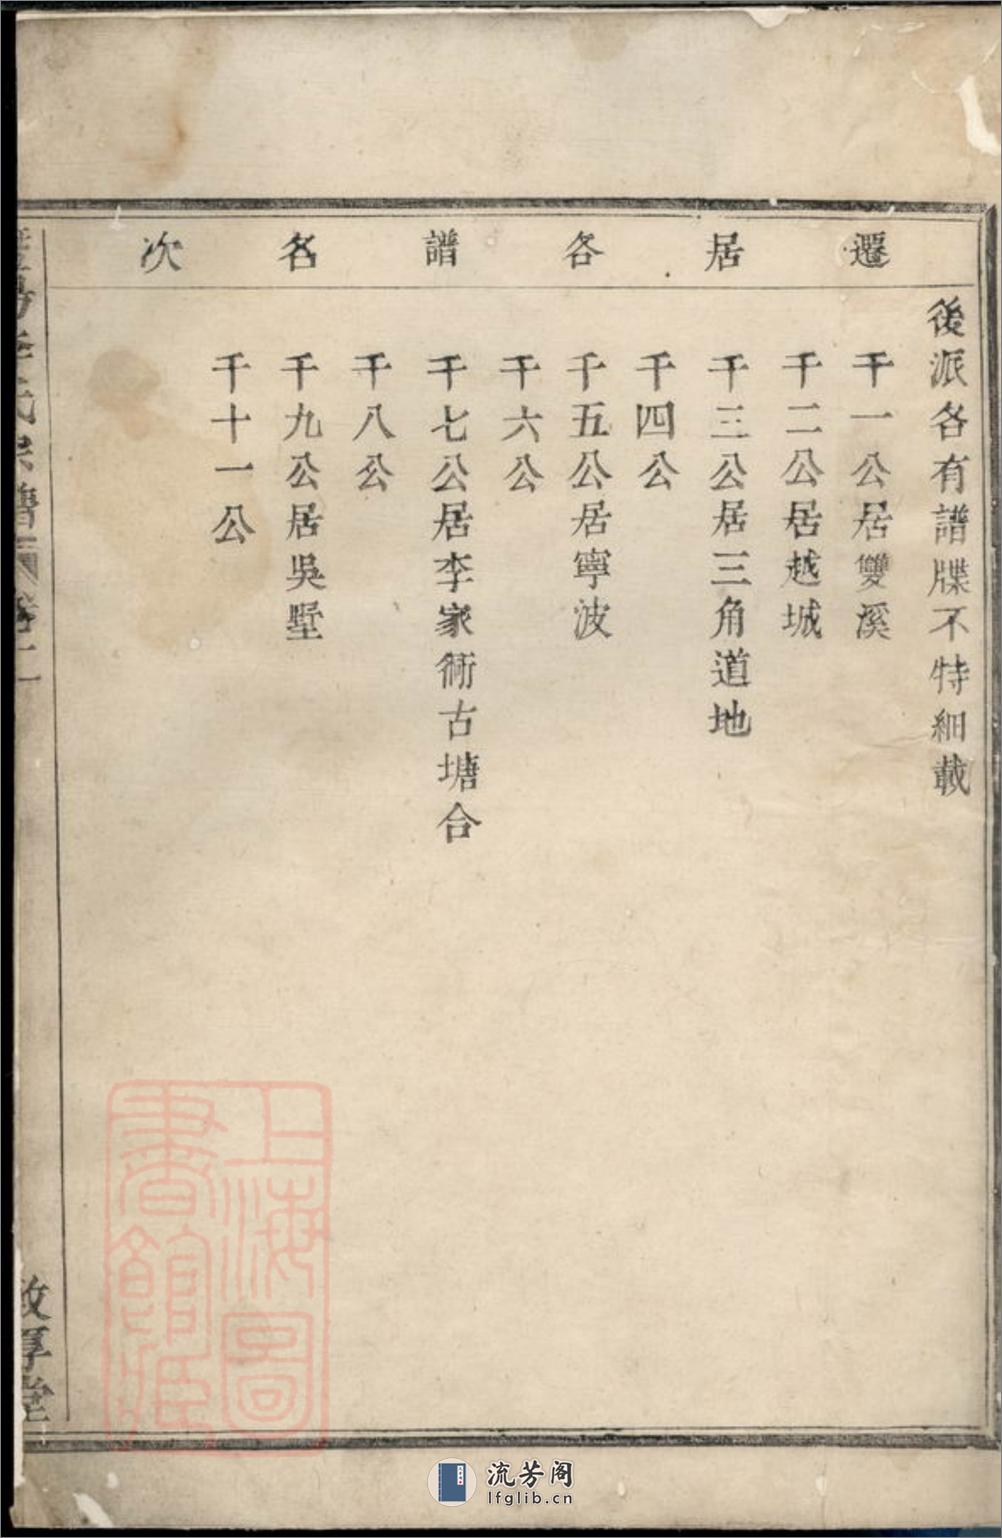 遷居各譜名次
後派各有譜牒不特細載
千一公居雙溪
千二公居越城
千三公居三角道地
千四公
千五公居寧波
千六公
千七公居李家衖古塘合
千八公
千九公居吳墅
千十一公
氏宗譜
厚堂
上海圖書館藏
流芳阁
lfglib.cn